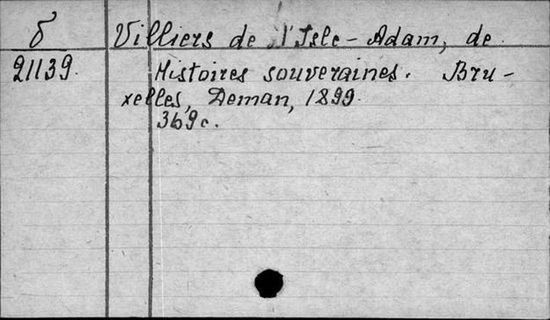 δ Villiers de l'Isle-Adam, de
21139. Histoires souveraines. Bru-
xelles, Deman, 1899.
369 c.